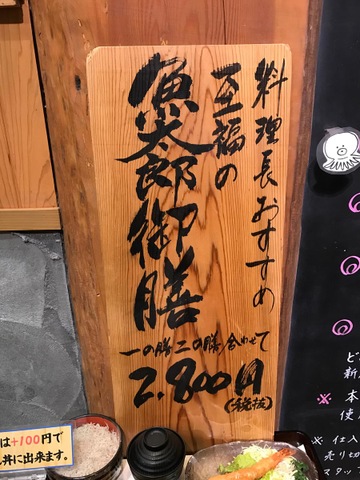 料理長おすすめ
至福の
魚太郎御膳
一の膳二の膳合わせて
2.800円
(税抜)
は+100円で
丼に出来ます。
※本
使
※仕入
売り切
スタッフ